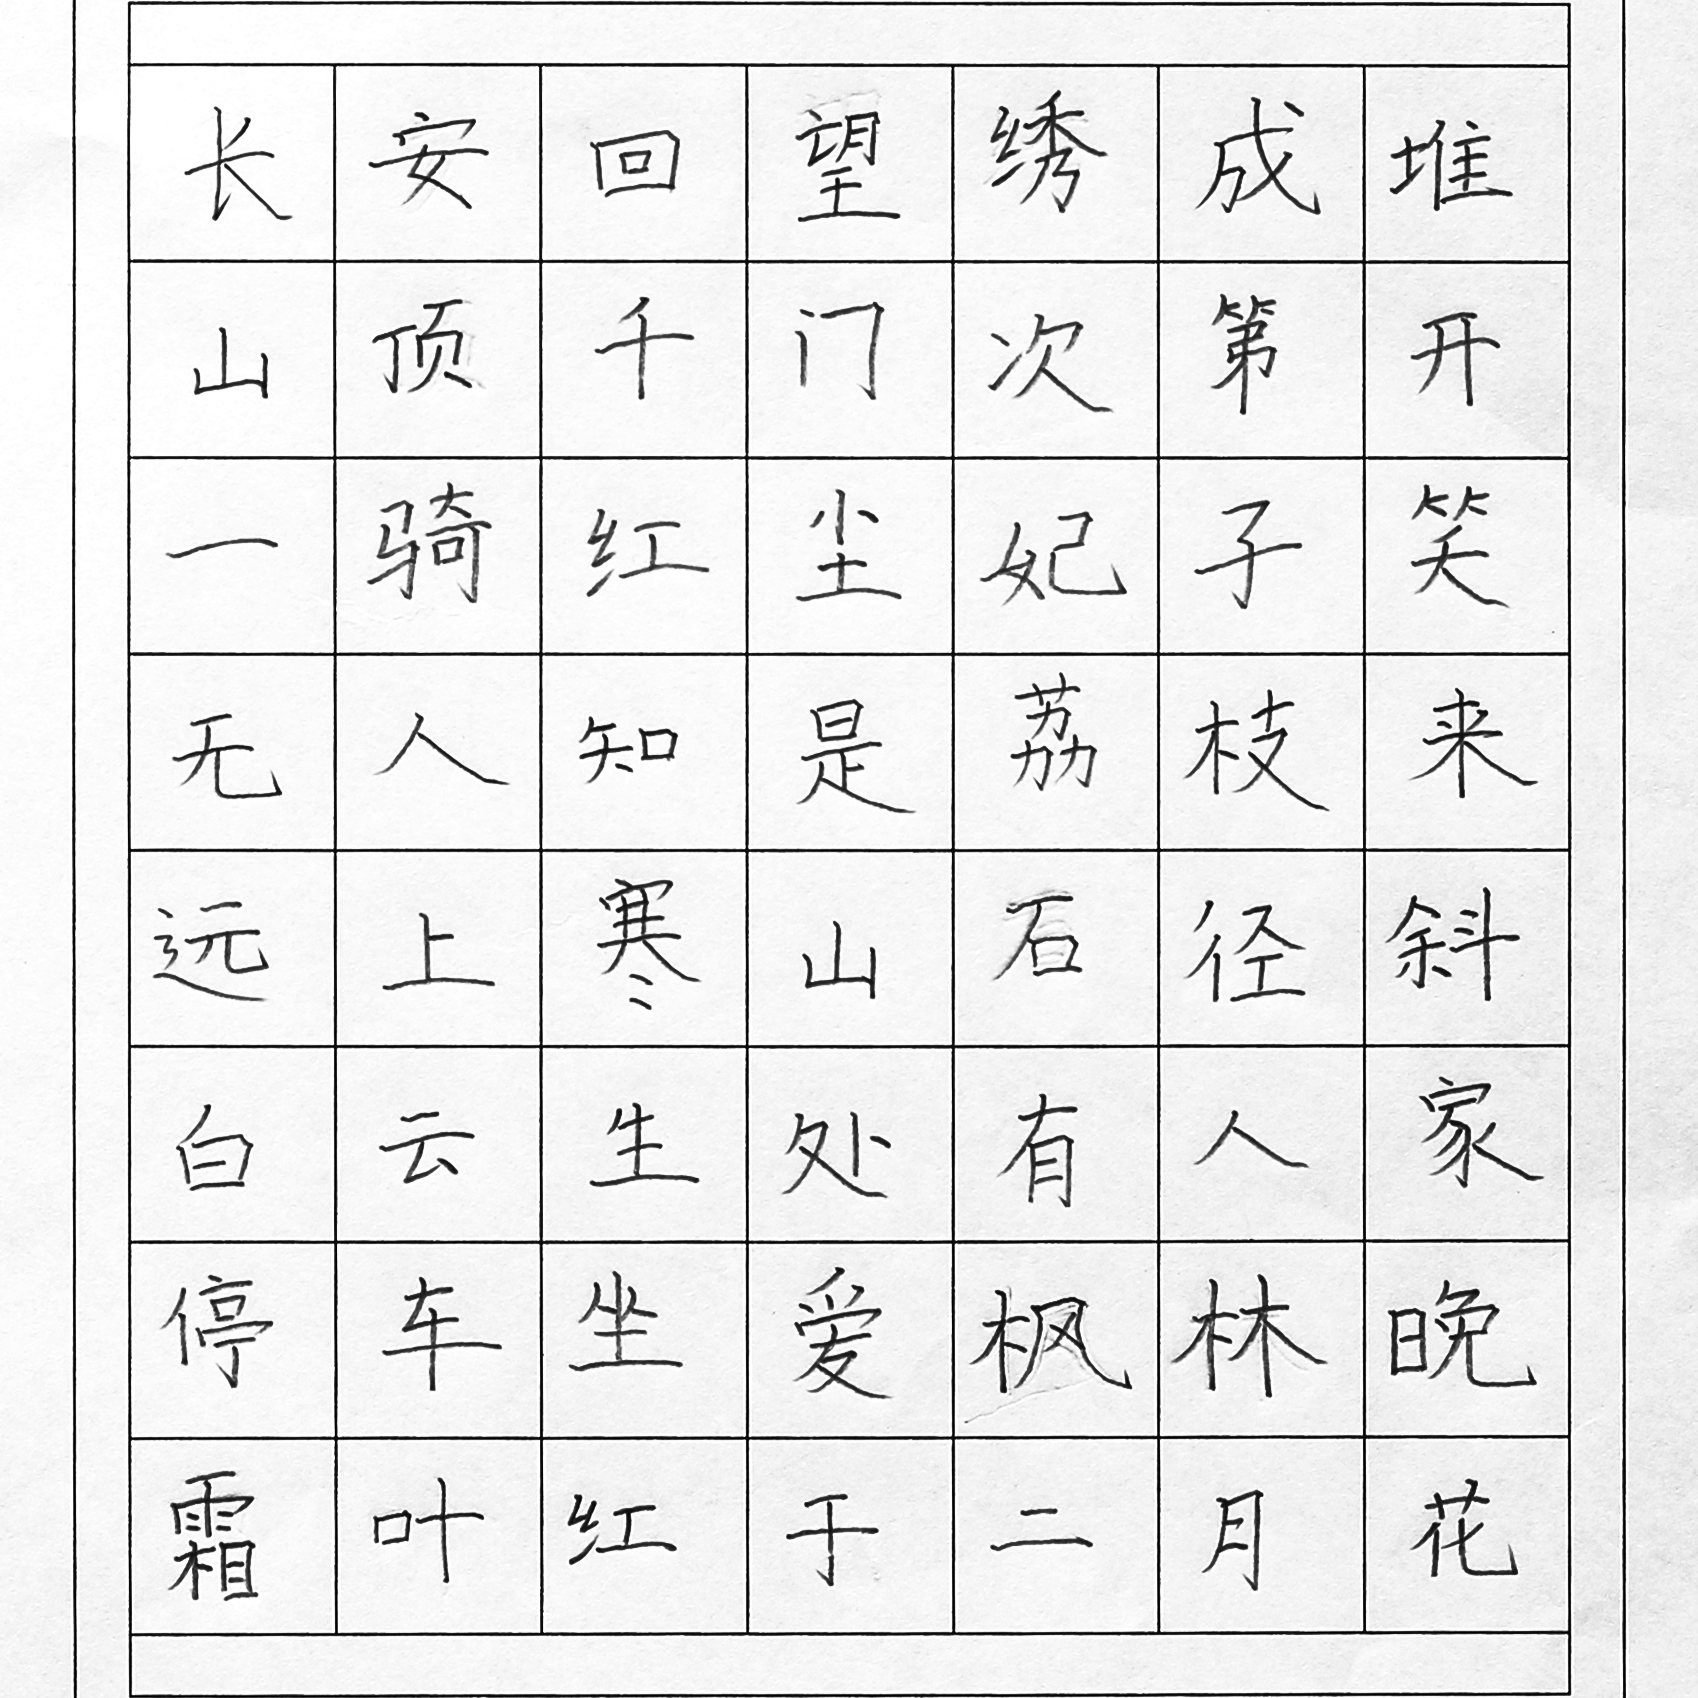 长安回望绣成堆
山顶千门次第开
一骑红尘妃子笑
无人知是荔枝来
远上寒山石径斜
白云生处有人家
停车坐爱枫林晚
霜叶红于二月花